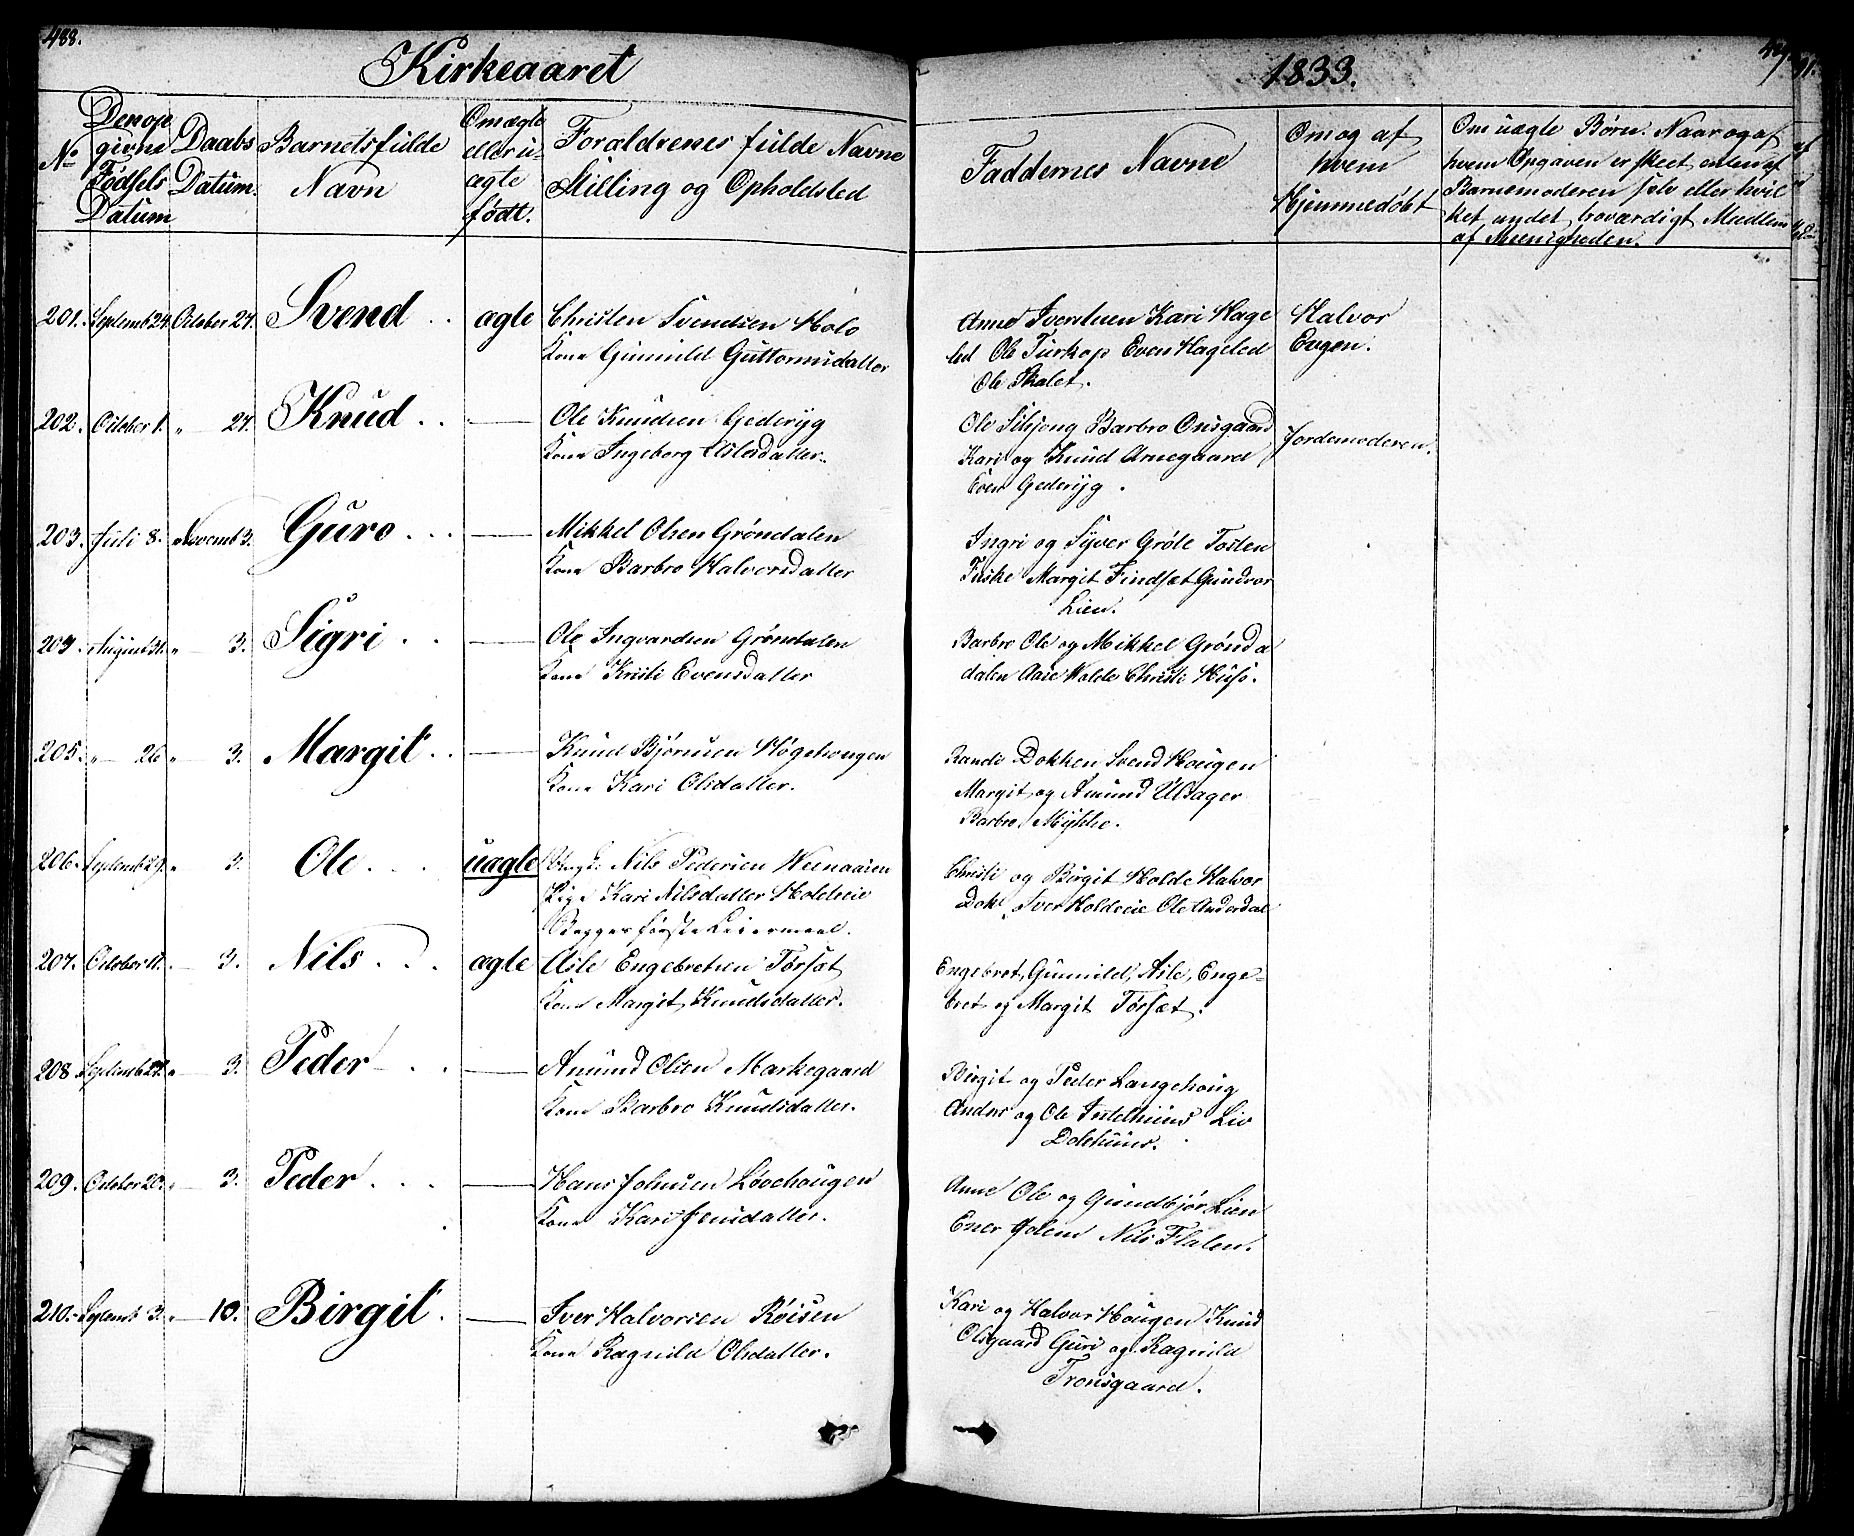 488.
Kirkeaaret
1833.
No
Den op
givne
Fødsels
Datum
Daabs
Datum.
Barnets fulde
Navn
Om ægte
eller u-
ægte
født.
Forældrenes fulde Navne
Stilling og Opholdsted
Faddernes Navne
Om og af
hvem
Hjemmedøbt
Om uægte Børn. Naar og af
hvem Opgaven er skeet, enten af
Barnemoderen selv eller hvil
ket andet troværdigt Medlem
af Menigheden.
201. Septemb 24. October 27. Svend . . ægte Christen Svendsen Holo
Kone Gunnild Guttormsdatter
Anne Iversluen Kari Hage
led Ole Turkop Even Hageled
Ole Skalet.
Halvor
Engen.
202. October 1. " — 27. Knud . . — Ole Knudsen Gederyg
Kone Ingeborg Aslesdatter.
Ole Silsjong Barbro Onsgaard
Kari og Knud Arnegaard
Even Gederyg .
Jordemoderen.
203. Juli 8. Novemb 3. Guro . . . — Mikkel Olsen Grøndalen
Kone Barbro Halvorsdatter
Ingri og Syver Grøte Tosten
Fiske Margit Findsæt Gundvor
Lien.
204. August 31. " — 3. Sigri . . — Ole Ingvardsen Grøndalen
Kone Kristi Evensdatter
Barbro Ole og Mikkel Grønda
dalen Aase Holde Christi Huso.
205. " — 26 " — 3. Margit . . — Knud Bjørnsen Høgehougen
Kone Kari Olsdatter.
Randi Dokken Svend Hougen
Margit og Amund Ulsager
Barbro Mykke.
206. Septemb 29. " 3. Ole . . . uægte Ungk: Nils Pedersen
Pige Kari Nilsdatter Holdeeie
Begges første Leiermaal.
Christi og Birgit Holde Halvor
Dok Iver Holdeeie Ole Anderdal
207. October 11. — 3. Nils . . . ægte Asle Engebretsen Torsæt
Kone Margit Knudsdatter.
Engebret, Gunnild, Asle, Enge-
bret og Margit Torsæt.
208. Septemb 27. " — 3. Peder — . . — Amund Olsen Markegaard
Kone Barbro Knudsdatter.
Birgit og Peder Langehoug
Anders og Ole Intelhuus Liv
Dolehuus.
209. October 20. — 3. Peder . . . — Hans Johnsen Løvehougen
Kone Kari Jensdatter.
Anne Ole og Gundbjør Lien
Ener Golem Nils Flaten.
210. Septemb 3. " — 10. Birgit . — Iver Halvorsen Røisen
Kone Ragnild Olsdatter.
Kari og Halvor Hougen Knud
Olsgaard Guri og Ragnild
Tronsgaard.